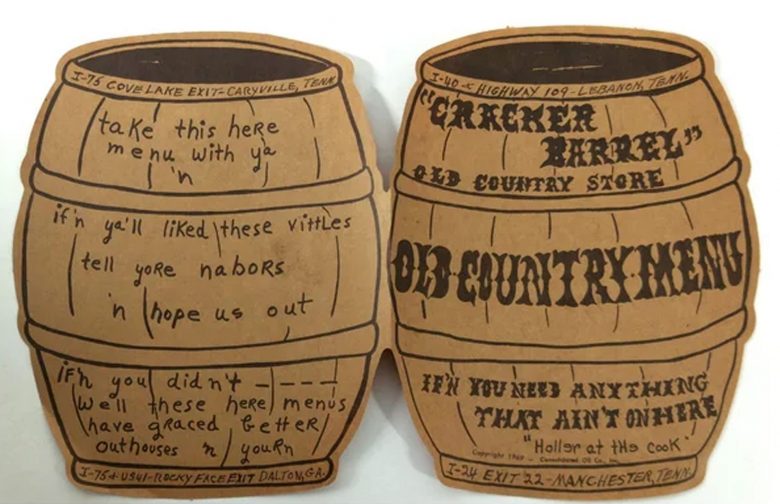 I-75 COVE LAKE EXIT-CARYVILLE, TENN
take this here
menu with ya
'n
if'n ya'll liked these vittles
tell yore nabors
'n hope us out
if'n you didn't - - - -
well these here menus
have graced better
outhouses 'n yourn
I-75 & US41-ROCKY FACE EXIT DALTON, GA.
I-40 & HIGHWAY 109-LEBANON, TENN.
"CRACKER
BARREL"
OLD COUNTRY STORE
OLD COUNTRY MENU
IF'N YOU NEED ANYTHING
THAT AIN'T ON HERE
"Holler at the cook"
Copyright 1969 - Consolidated Oil Co., Inc.
I-24 EXIT '22-MANCHESTER, TENN.